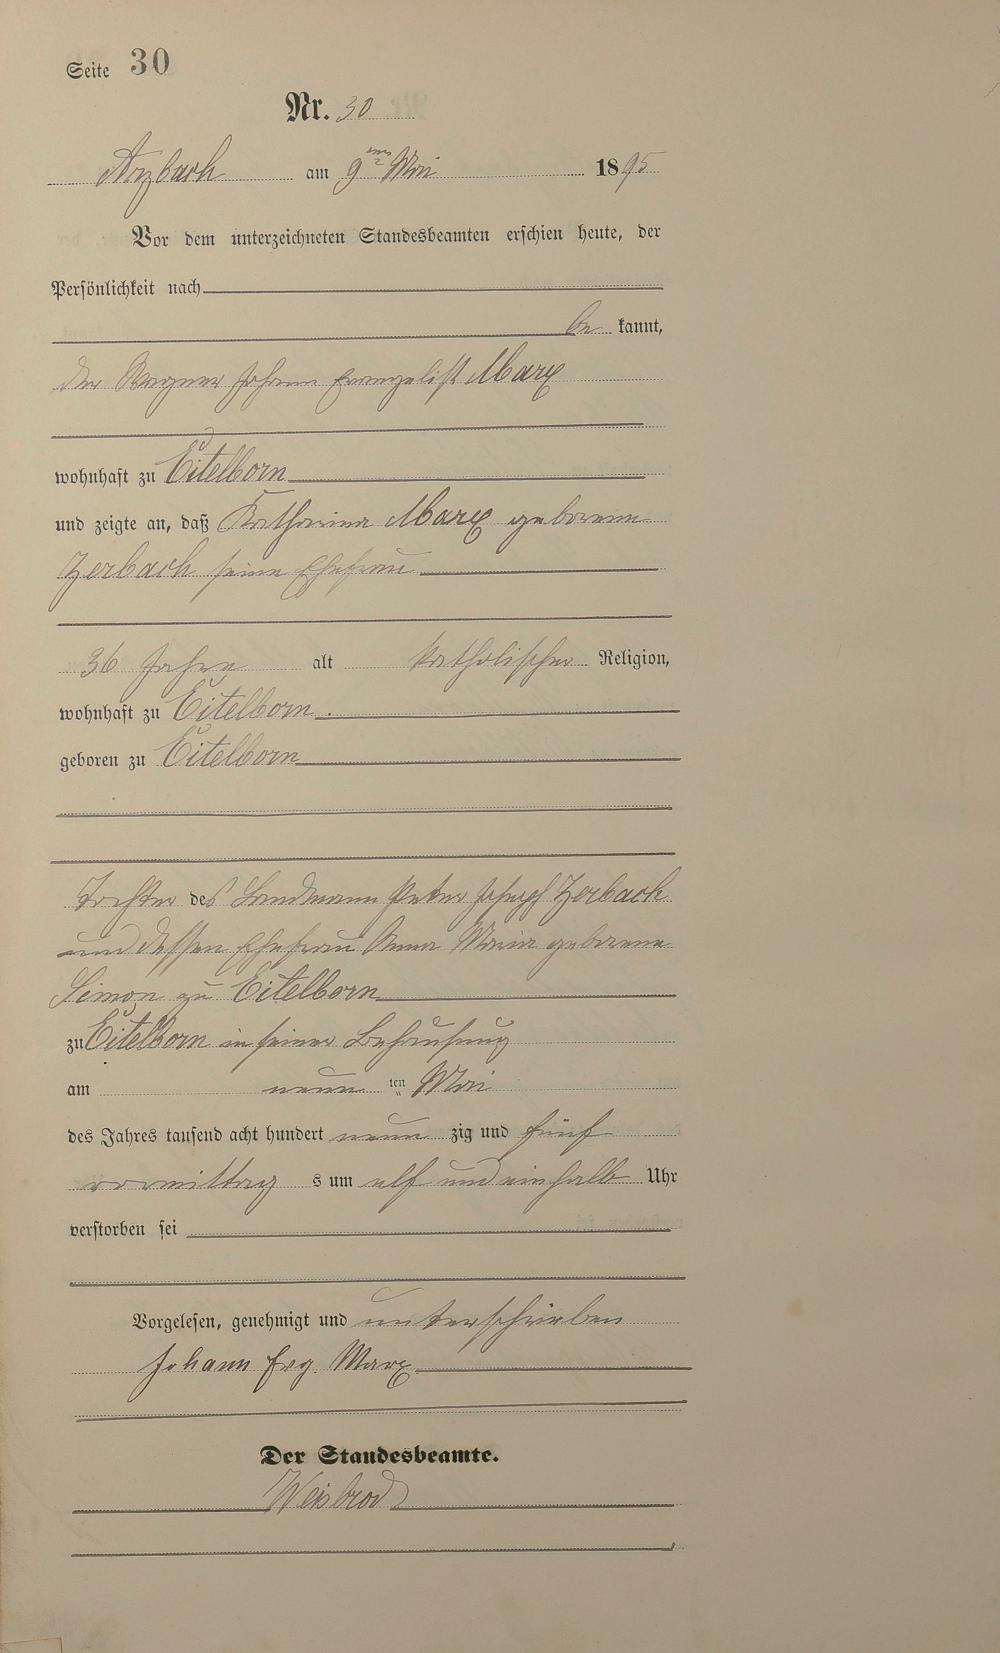 Seite 30
Nr. 30
Arzbach am 9ten Mai 1895
Vor dem unterzeichneten Standesbeamten erschien heute, der
Persönlichkeit nach
be kannt,
der Wagner Johann Evangelist Marx
wohnhaft zu Eitelborn
und zeigte an, daß Katharina Marx geborene
Zerbach seine Ehefrau
36 Jahre alt katholischer Religion,
wohnhaft zu Eitelborn
geboren zu Eitelborn
Tochter des Landmann Peter Joseph Zerbach
und dessen Ehefrau Anna Maria geborene
Simon zu Eitelborn
zu Eitelborn in seiner Behausung
am neun ten Mai
des Jahres tausend acht hundert neun zig und fünf
vormittag s um elf und einhalb Uhr
verstorben sei
Vorgelesen, genehmigt und unterschrieben
Johann Evg. Marx
Der Standesbeamte.
Weisbrod